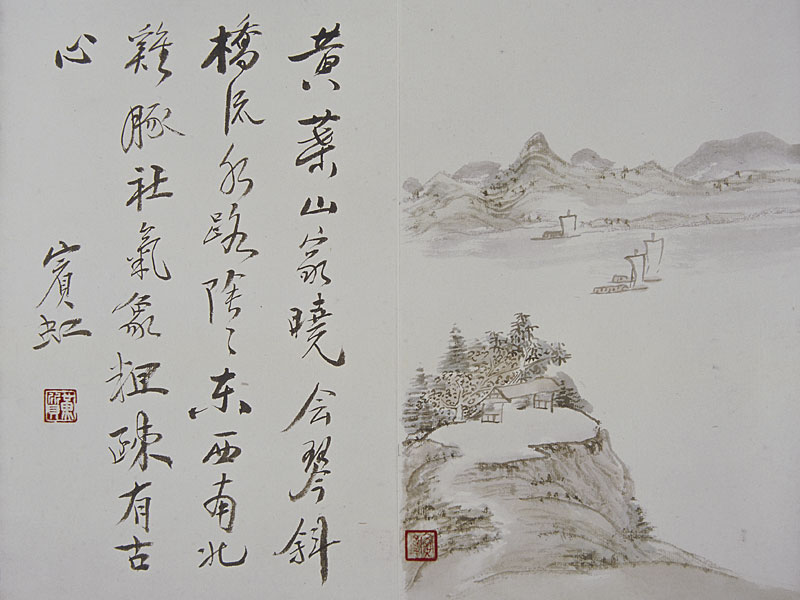 黄葉山家曉会琴斜
橋流水路陰〻东西南北
雞豚社氣象粗疎有古
心
賓虹